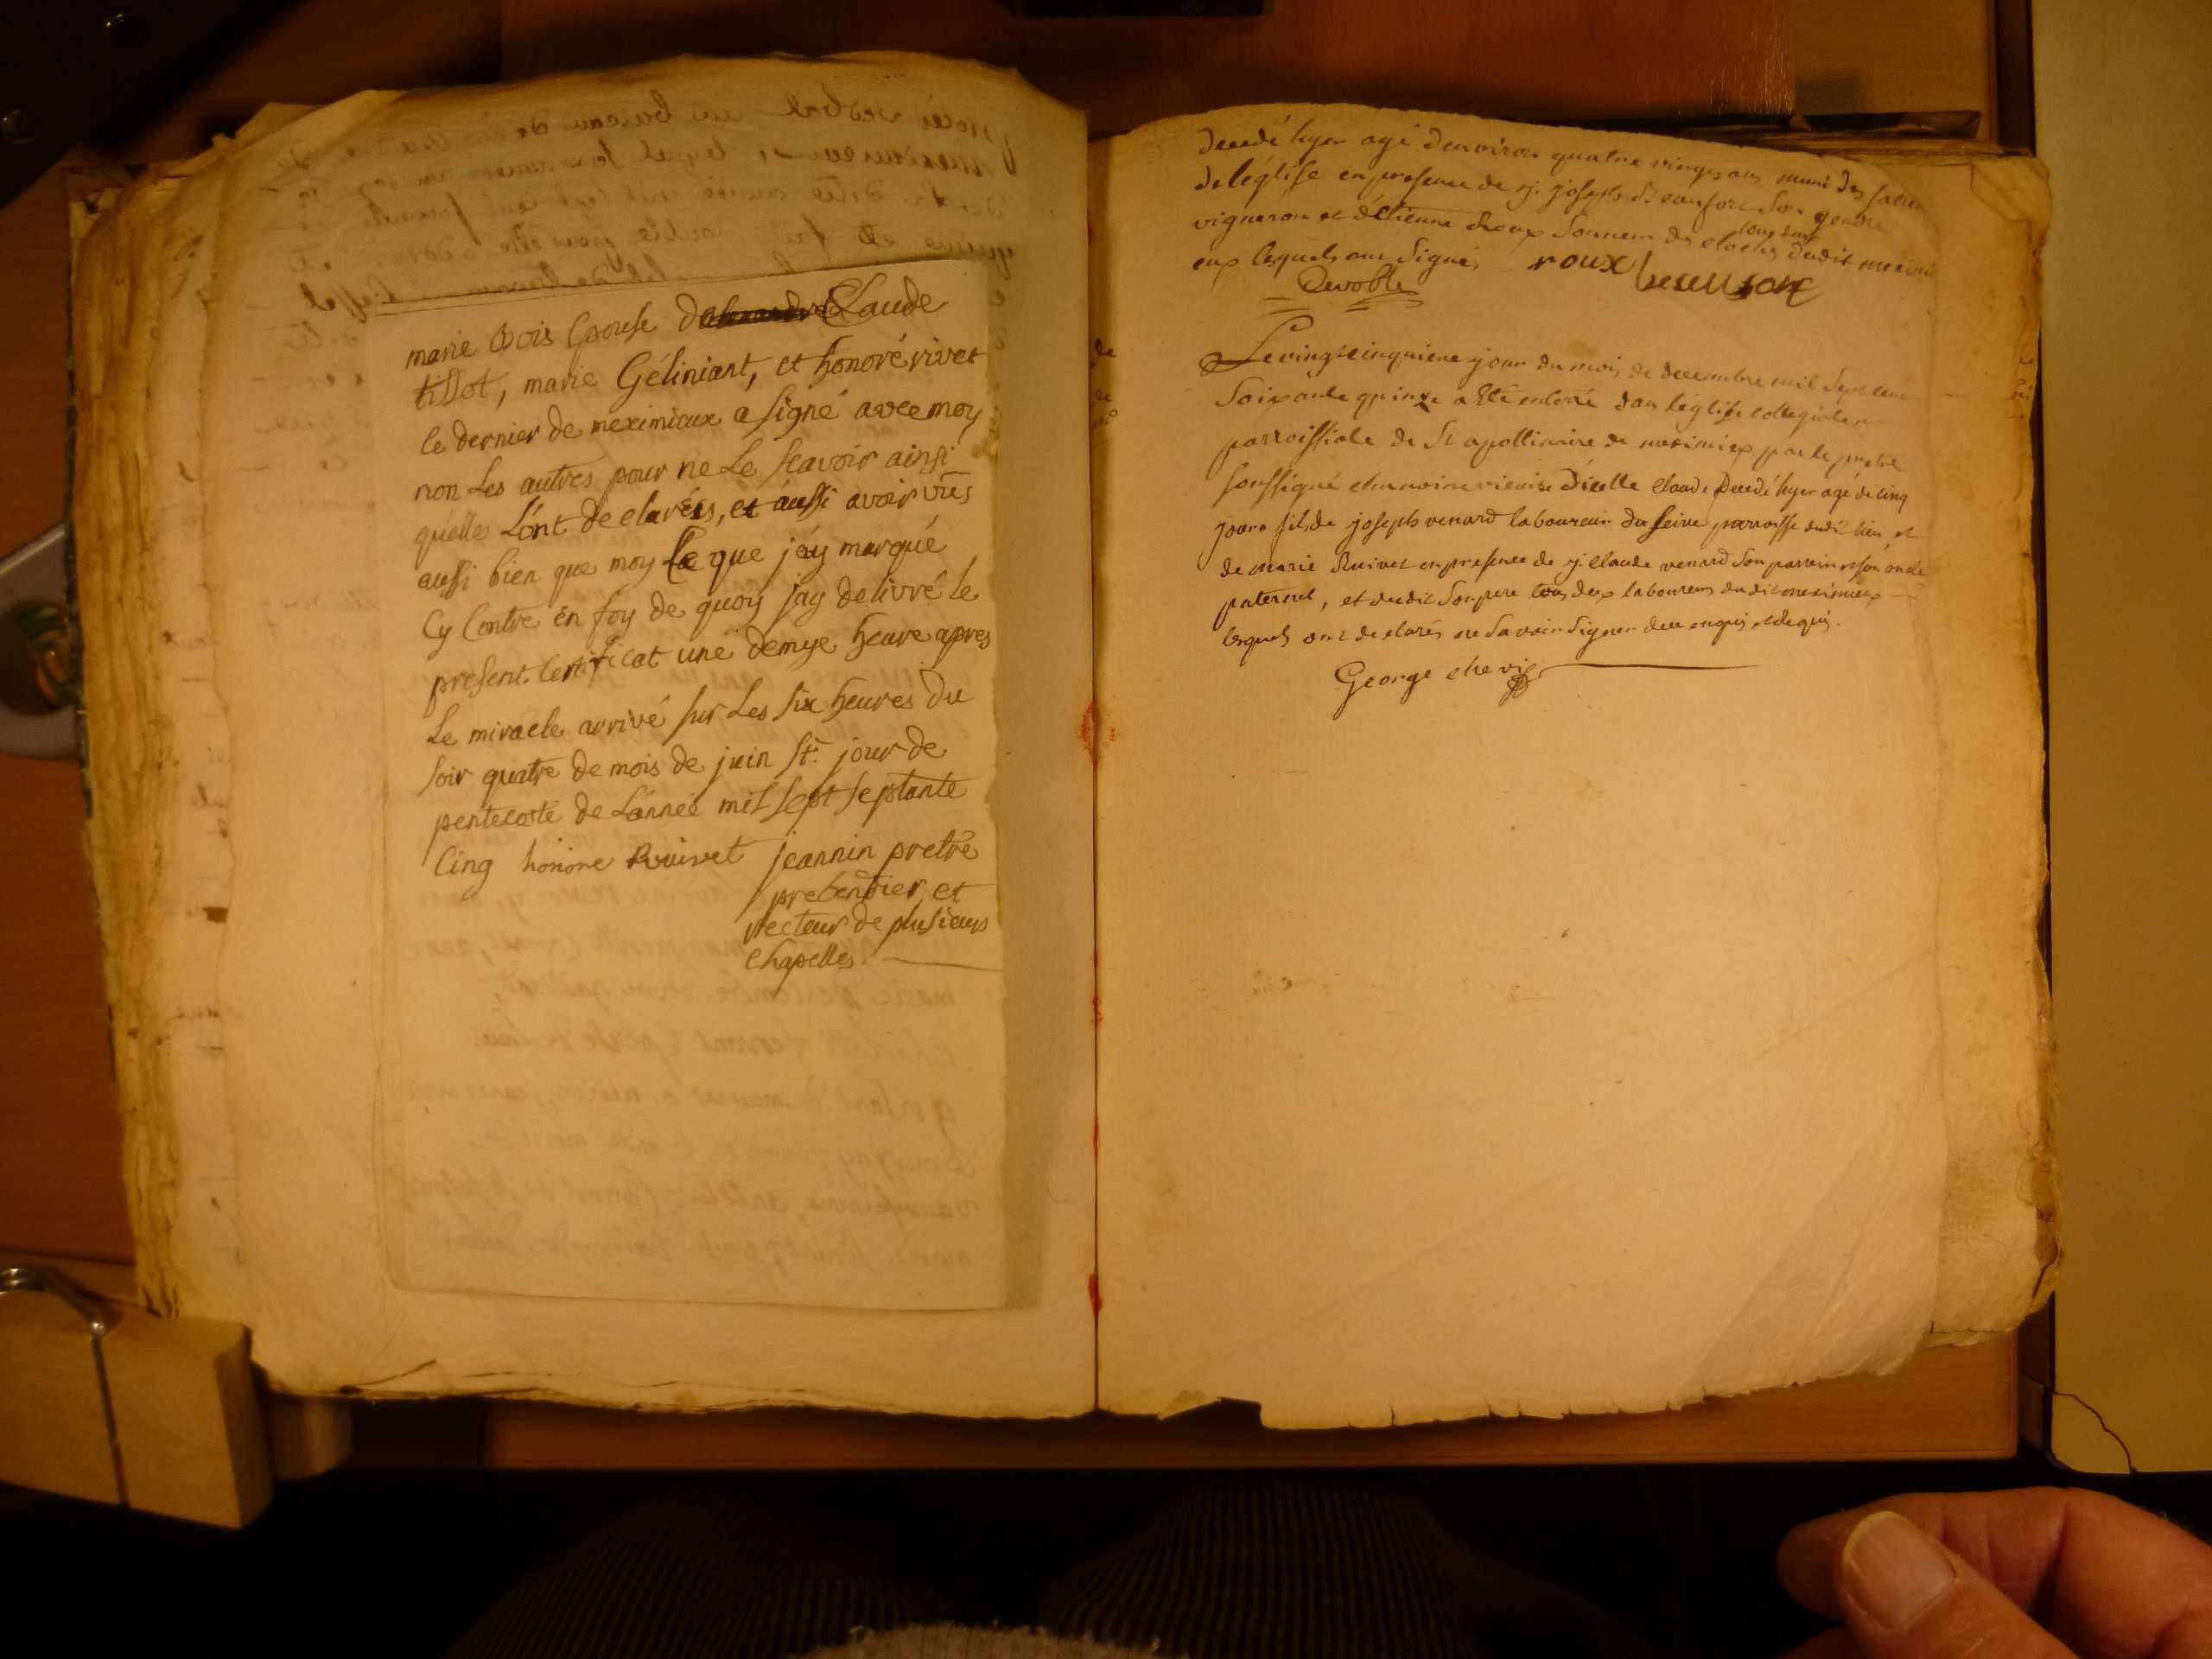 marie Bois Epouse d Claude
tissot, marie Géliniant, et honoré rivet
le dernier de meximieux a signé avec moy
non Les autres pour ne Le scavoir ainsi
quelles L'ont declarées, et aussi avoir vûs
aussi bien que moy Le que j'ay marqué
Cy Contre en foy de quoy jay delivré le
present Certificat une demye heure apres
Le miracle arrivé sur Les six heures du
soir quatre de mois de juin St. jour de
pentecoste de L'année mil sept septante
Cinq honore Ruivet jeannin pretre
prebendier et
recteur de plusieurs
chapelles.
decedé hyer agé denviron quatre vingts ans muni des
de léglise en presence de sj. joseph Beaufort son gendre
vigneron et d'étienne Roux sonneur des cloches dudit
tous deux
eux lesquels ont signé, roux
Devoble
Le vingt cinquieme jour du mois de decembre mil sept cent
soixante quinze a Eté enterré dans léglise collegiale et
parroissiale de St apollinaire de meximieux par le pretre
soussigné chanoine vicaire d'icelle claude decedé hyer agé de cinq
jours fils de joseph venard laboureur du parroisse dudit lieu et
de marie Ruivet en presence de sj. claude venard son parrain et son oncle
paternel, et dudit son pere tous deux laboureurs dudit meximieux
lesquels ont declarés ne savoir signer de ce enquis et requis.
George chevig